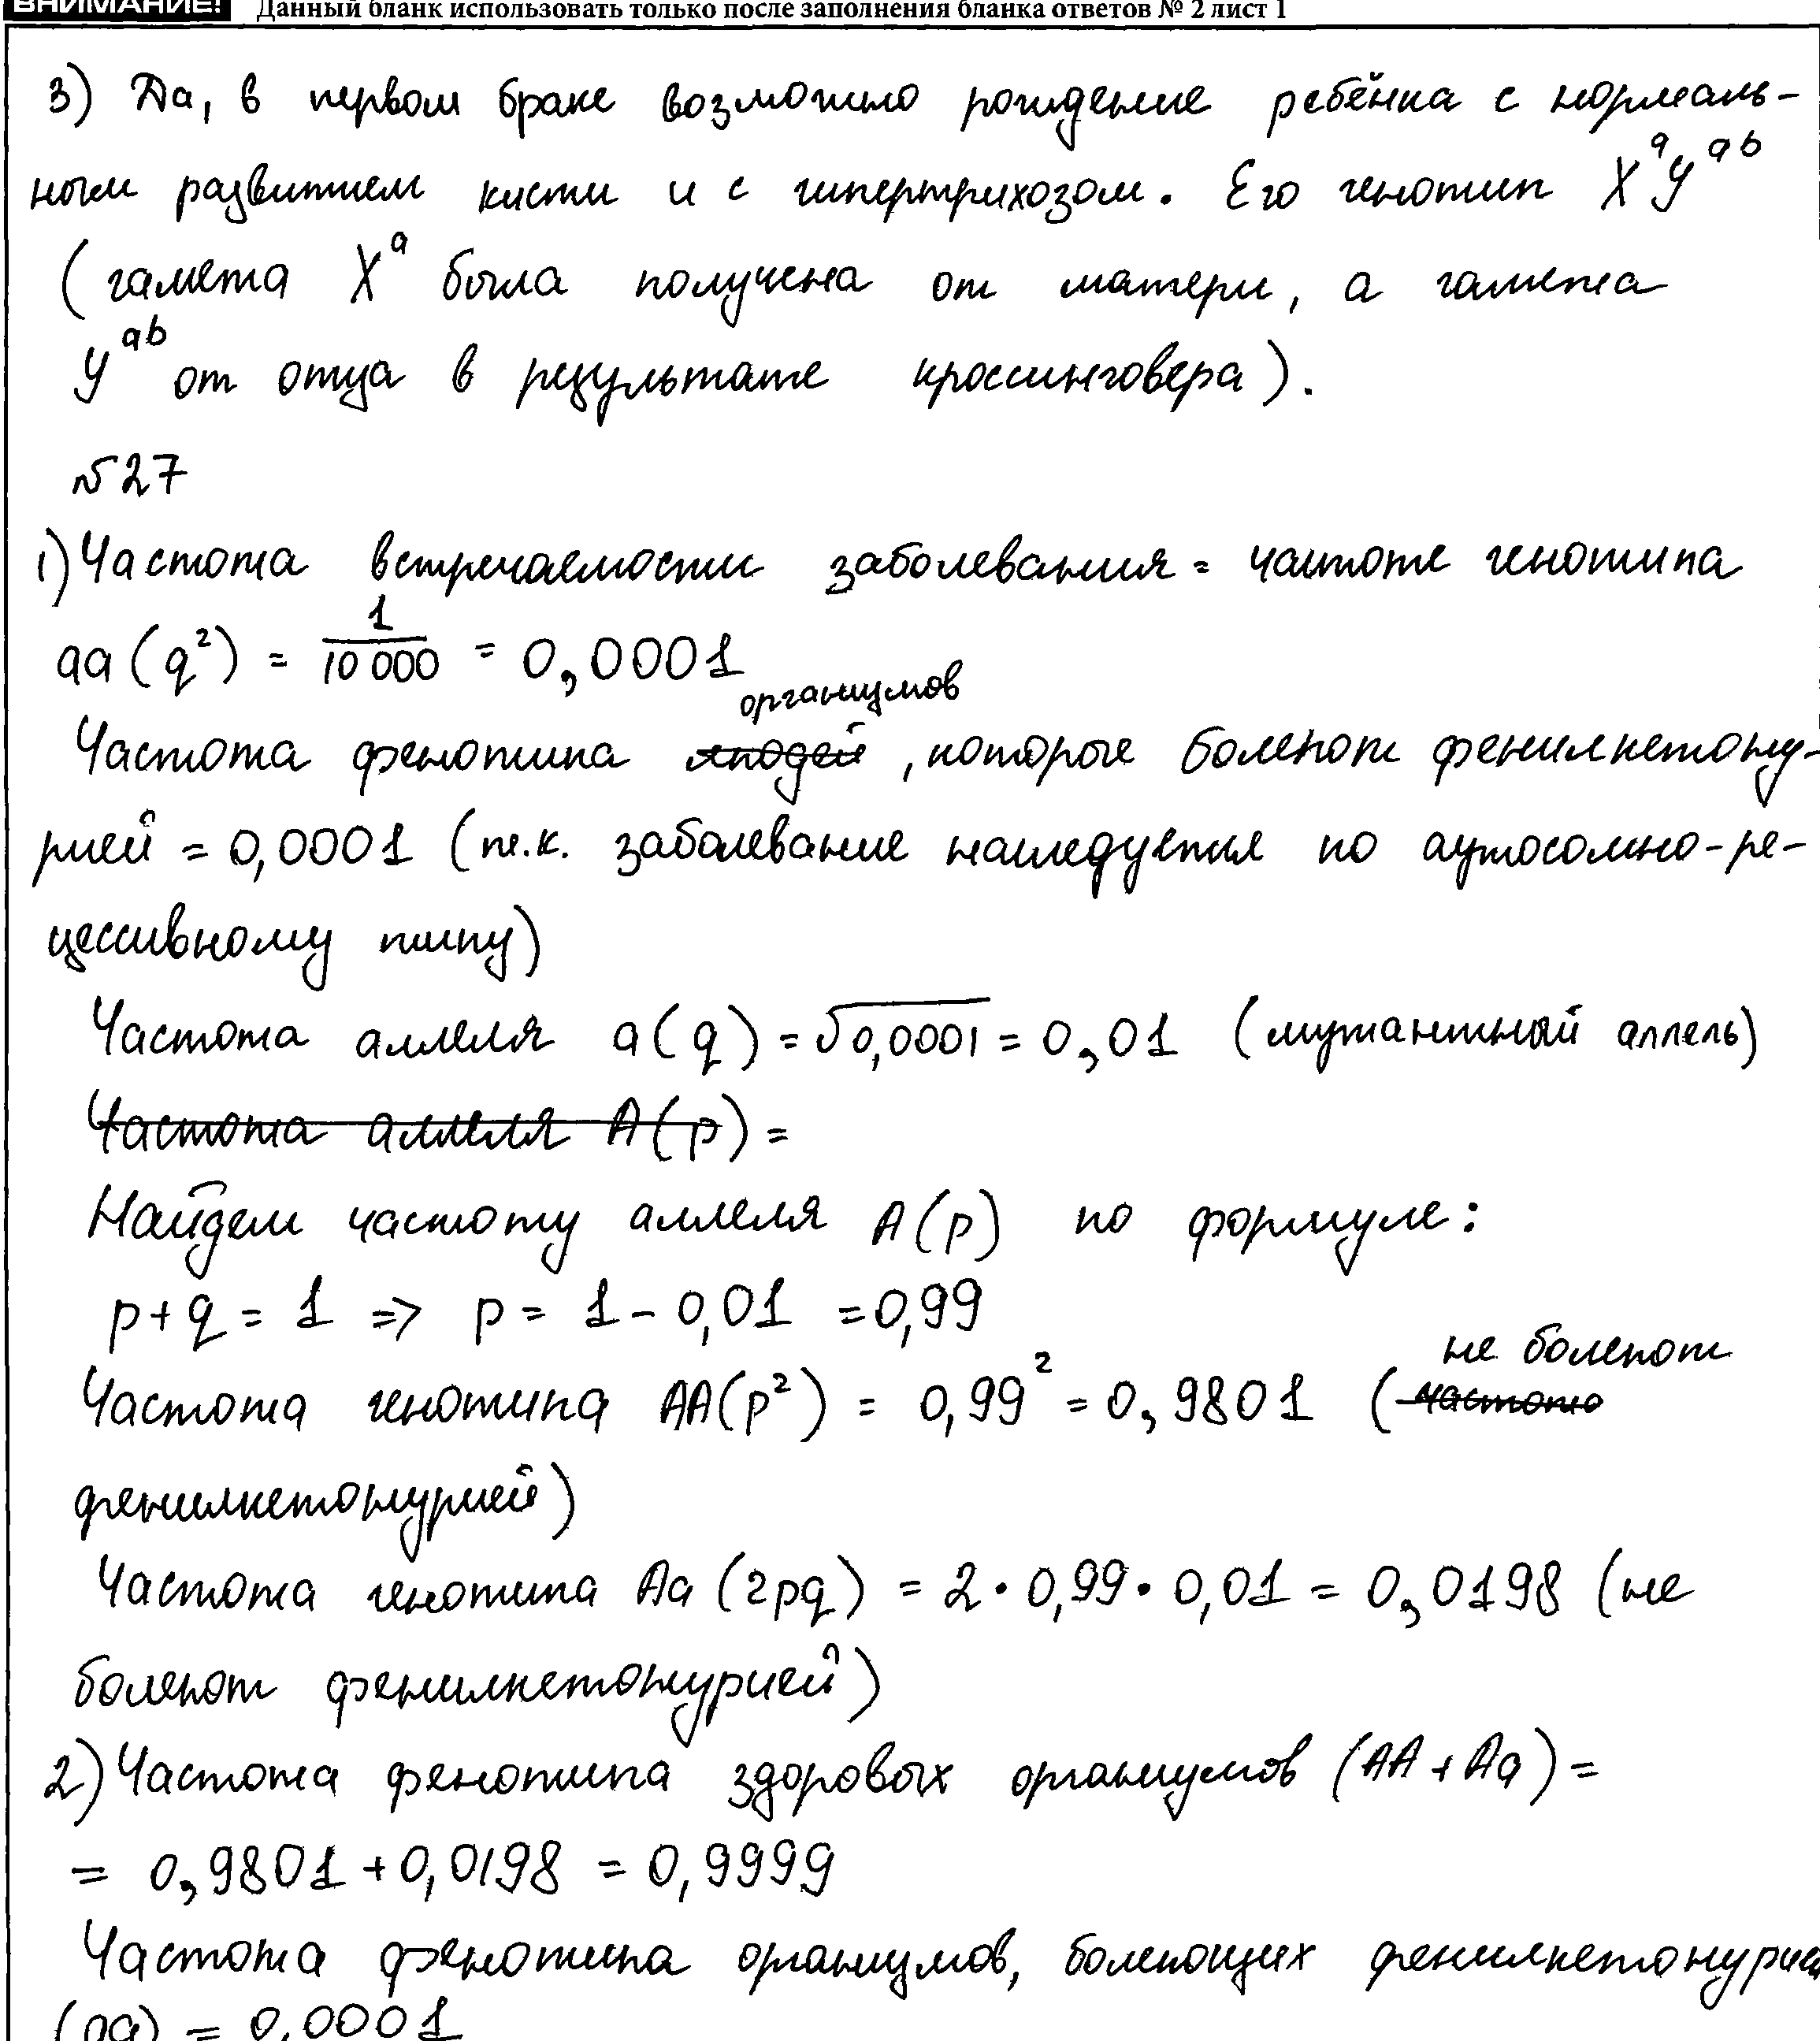 ВНИМАНИЕ! Данный бланк использовать только после заполнения бланка ответов № 2 лист 1
3) Да, в первом браке возможно рождение ребёнка с нормаль-
ным развитием кисти и с гипертрихозом. Его генотип XᵃYᵃᵇ
(гамета Xᵃ была получена от матери, а гамета
Yᵃᵇ от отца в результате кроссинговера).
№27
1) Частота встречаемости заболевания = частоте генотипа
aa(q²) = 1/10 000 = 0,0001
организмов
Частота фенотипа людей, которые болеют фенилкетону-
рией = 0,0001 (т.к. заболевание наследуется по аутосомно-ре-
цессивному типу)
Частота аллеля a(q) = √0,0001 = 0,01 (мутантный аллель)
Частота аллеля A(p) =
Найдем частоту аллеля A(p) по формуле:
p+q = 1 => p = 1 - 0,01 = 0,99
не болеют
Частота генотипа AA(p²) = 0,99² = 0,9801 (частота
фенилкетонурией)
Частота генотипа Aa(2pq) = 2·0,99·0,01 = 0,0198 (не
болеют фенилкетонурией)
2) Частота фенотипа здоровых организмов (AA + Aa) =
= 0,9801 + 0,0198 = 0,9999
Частота фенотипа организмов, болеющих фенилкетонурией
(aa) = 0,0001